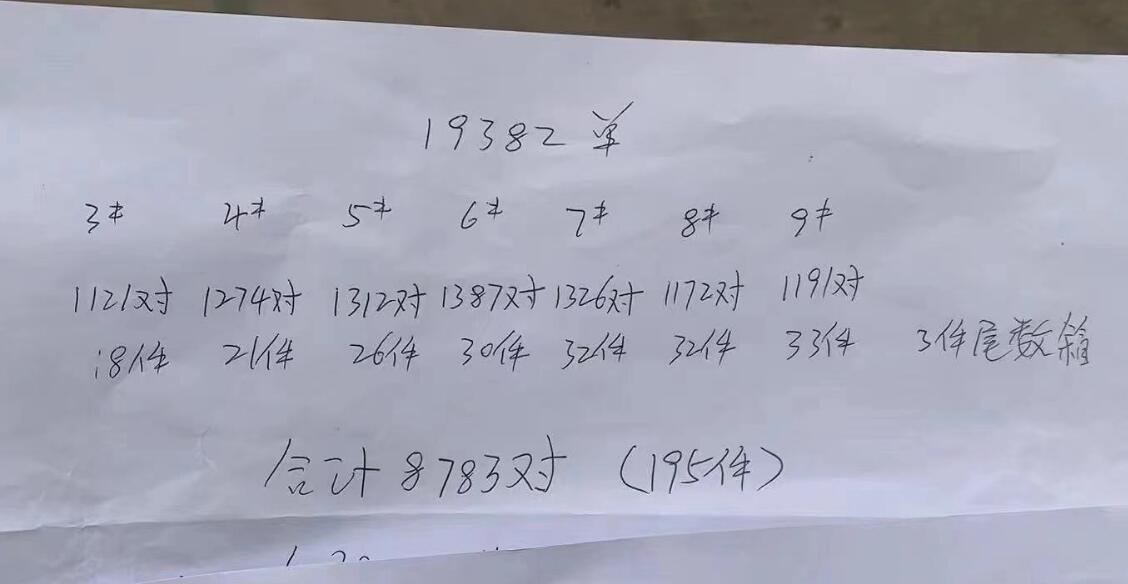 19382单
3# 4# 5# 6# 7# 8# 9#
1121对 1274对 1312对 1387对 1326对 1172对 1191对
18件 21件 26件 30件 32件 32件 33件 3件尾数箱
合计8783对 (195件)